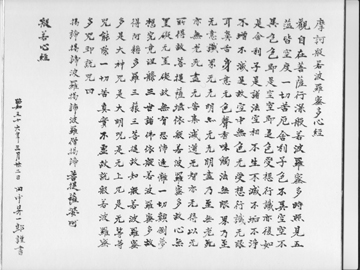 摩訶般若波羅蜜多心經
觀自在菩薩行深般若波羅蜜多時照見五
蘊皆空度一切苦厄舍利子色不異空空不
異色色即是空空即是色受想行識亦復如
是舍利子是諸法空相不生不滅不垢不淨
不增不減是故空中無色無受想行識無眼
耳鼻舌身意無色聲香味觸法無眼界乃至
無意識界無無明亦無無明盡乃至無老死
亦無老死盡無苦集滅道無智亦無得以無
所得故菩提薩埵依般若波羅蜜多故心無
罣礙無罣礙故無有恐怖遠離一切顛倒夢
想究竟涅槃三世諸佛依般若波羅蜜多故
得阿耨多羅三藐三菩提故知般若波羅蜜
多是大神咒是大明咒是無上咒是無等等
咒能除一切苦真實不虛故說般若波羅蜜
多咒即說咒曰
揭諦揭諦波羅揭諦波羅僧揭諦菩提薩婆訶
般若心經
十六年三月廿三日 田中昇一郎謹書